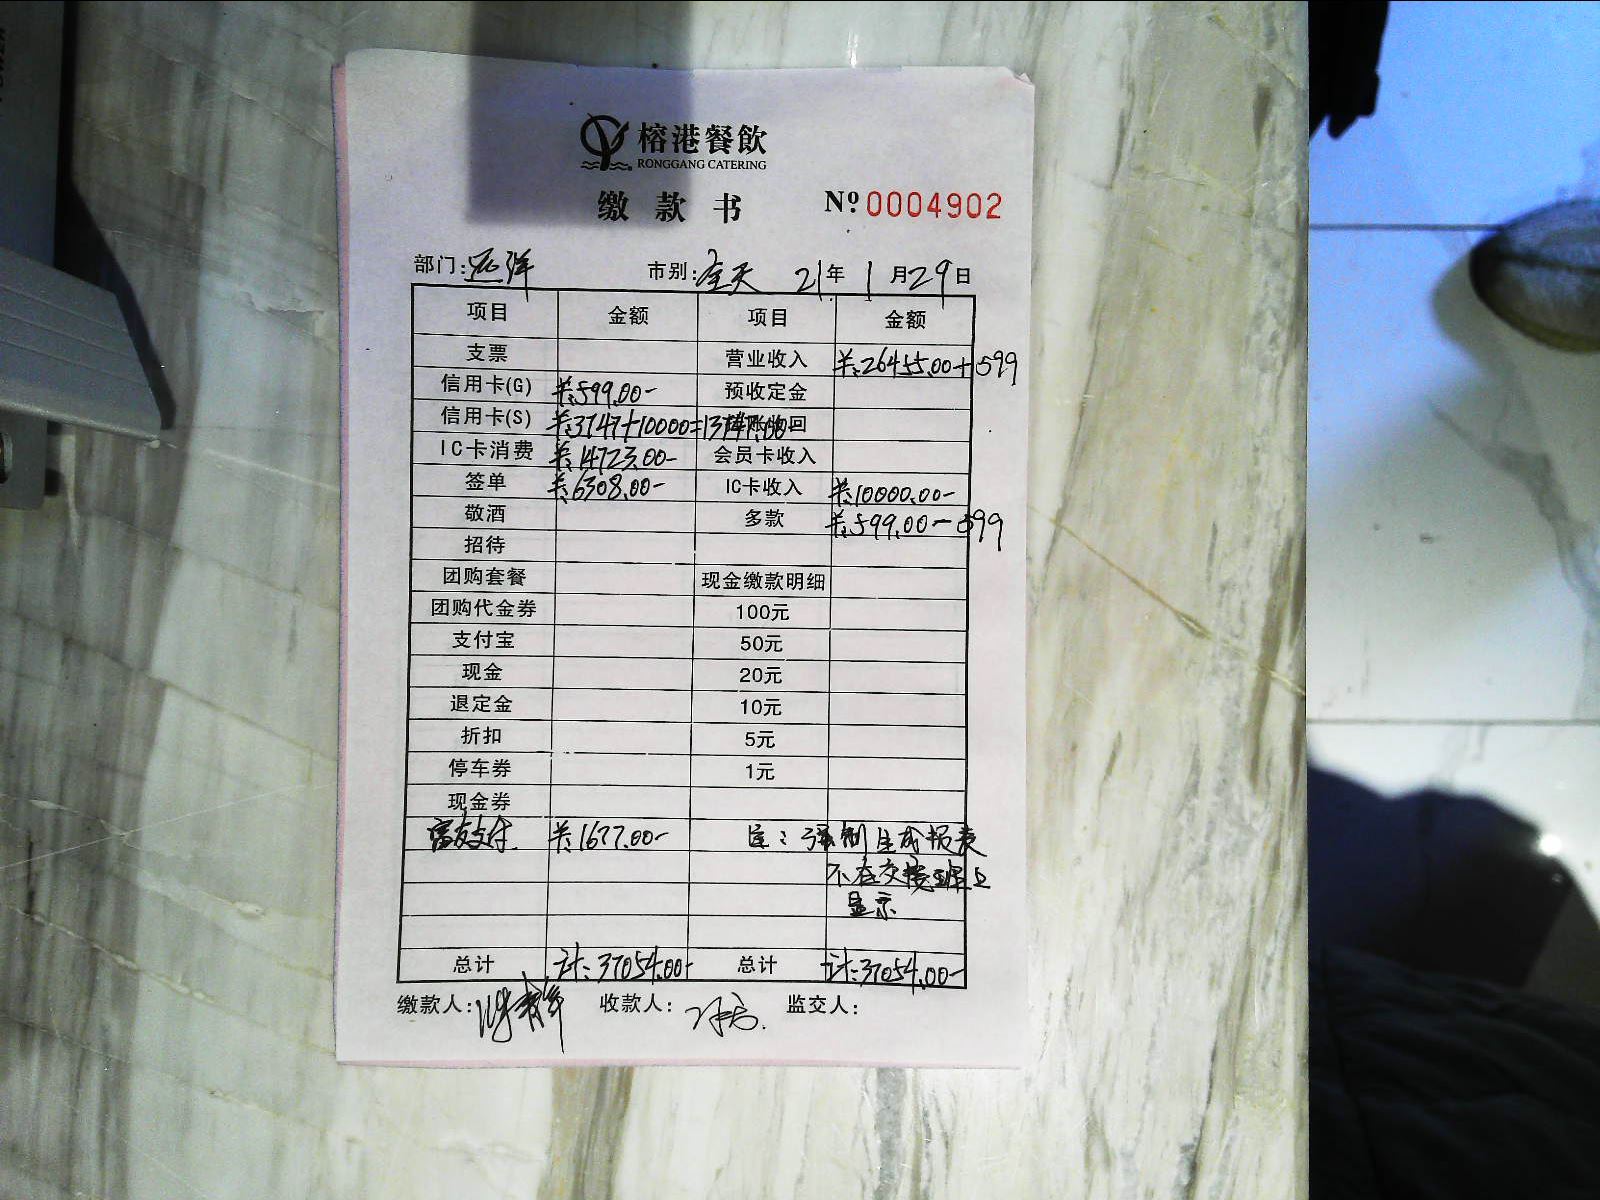 榕港餐飲
RONGGANG CATERING
缴款书 Nº 0004902
部门:远洋 市别:全天 21年1月29日
项目 金额 项目 金额
支票 营业收入 ¥:26455.00+599
信用卡(G) ¥:599.00- 预收定金
信用卡(S) ¥:3747+10000=13747.00- 挂账收回
IC卡消费 ¥:14723.00- 会员卡收入
签单 ¥:6308.00- IC卡收入 ¥:10000.00-
敬酒 多款 ¥:599.00-599
招待
团购套餐 现金缴款明细
团购代金券 100元
支付宝 50元
现金 20元
退定金 10元
折扣 5元
停车券 1元
现金券
富友支付 ¥:1677.00- 注:强制生成报表
不在交接班上
显示
总计 计:37054.00- 总计 计:37054.00-
缴款人: 收款人: 监交人: